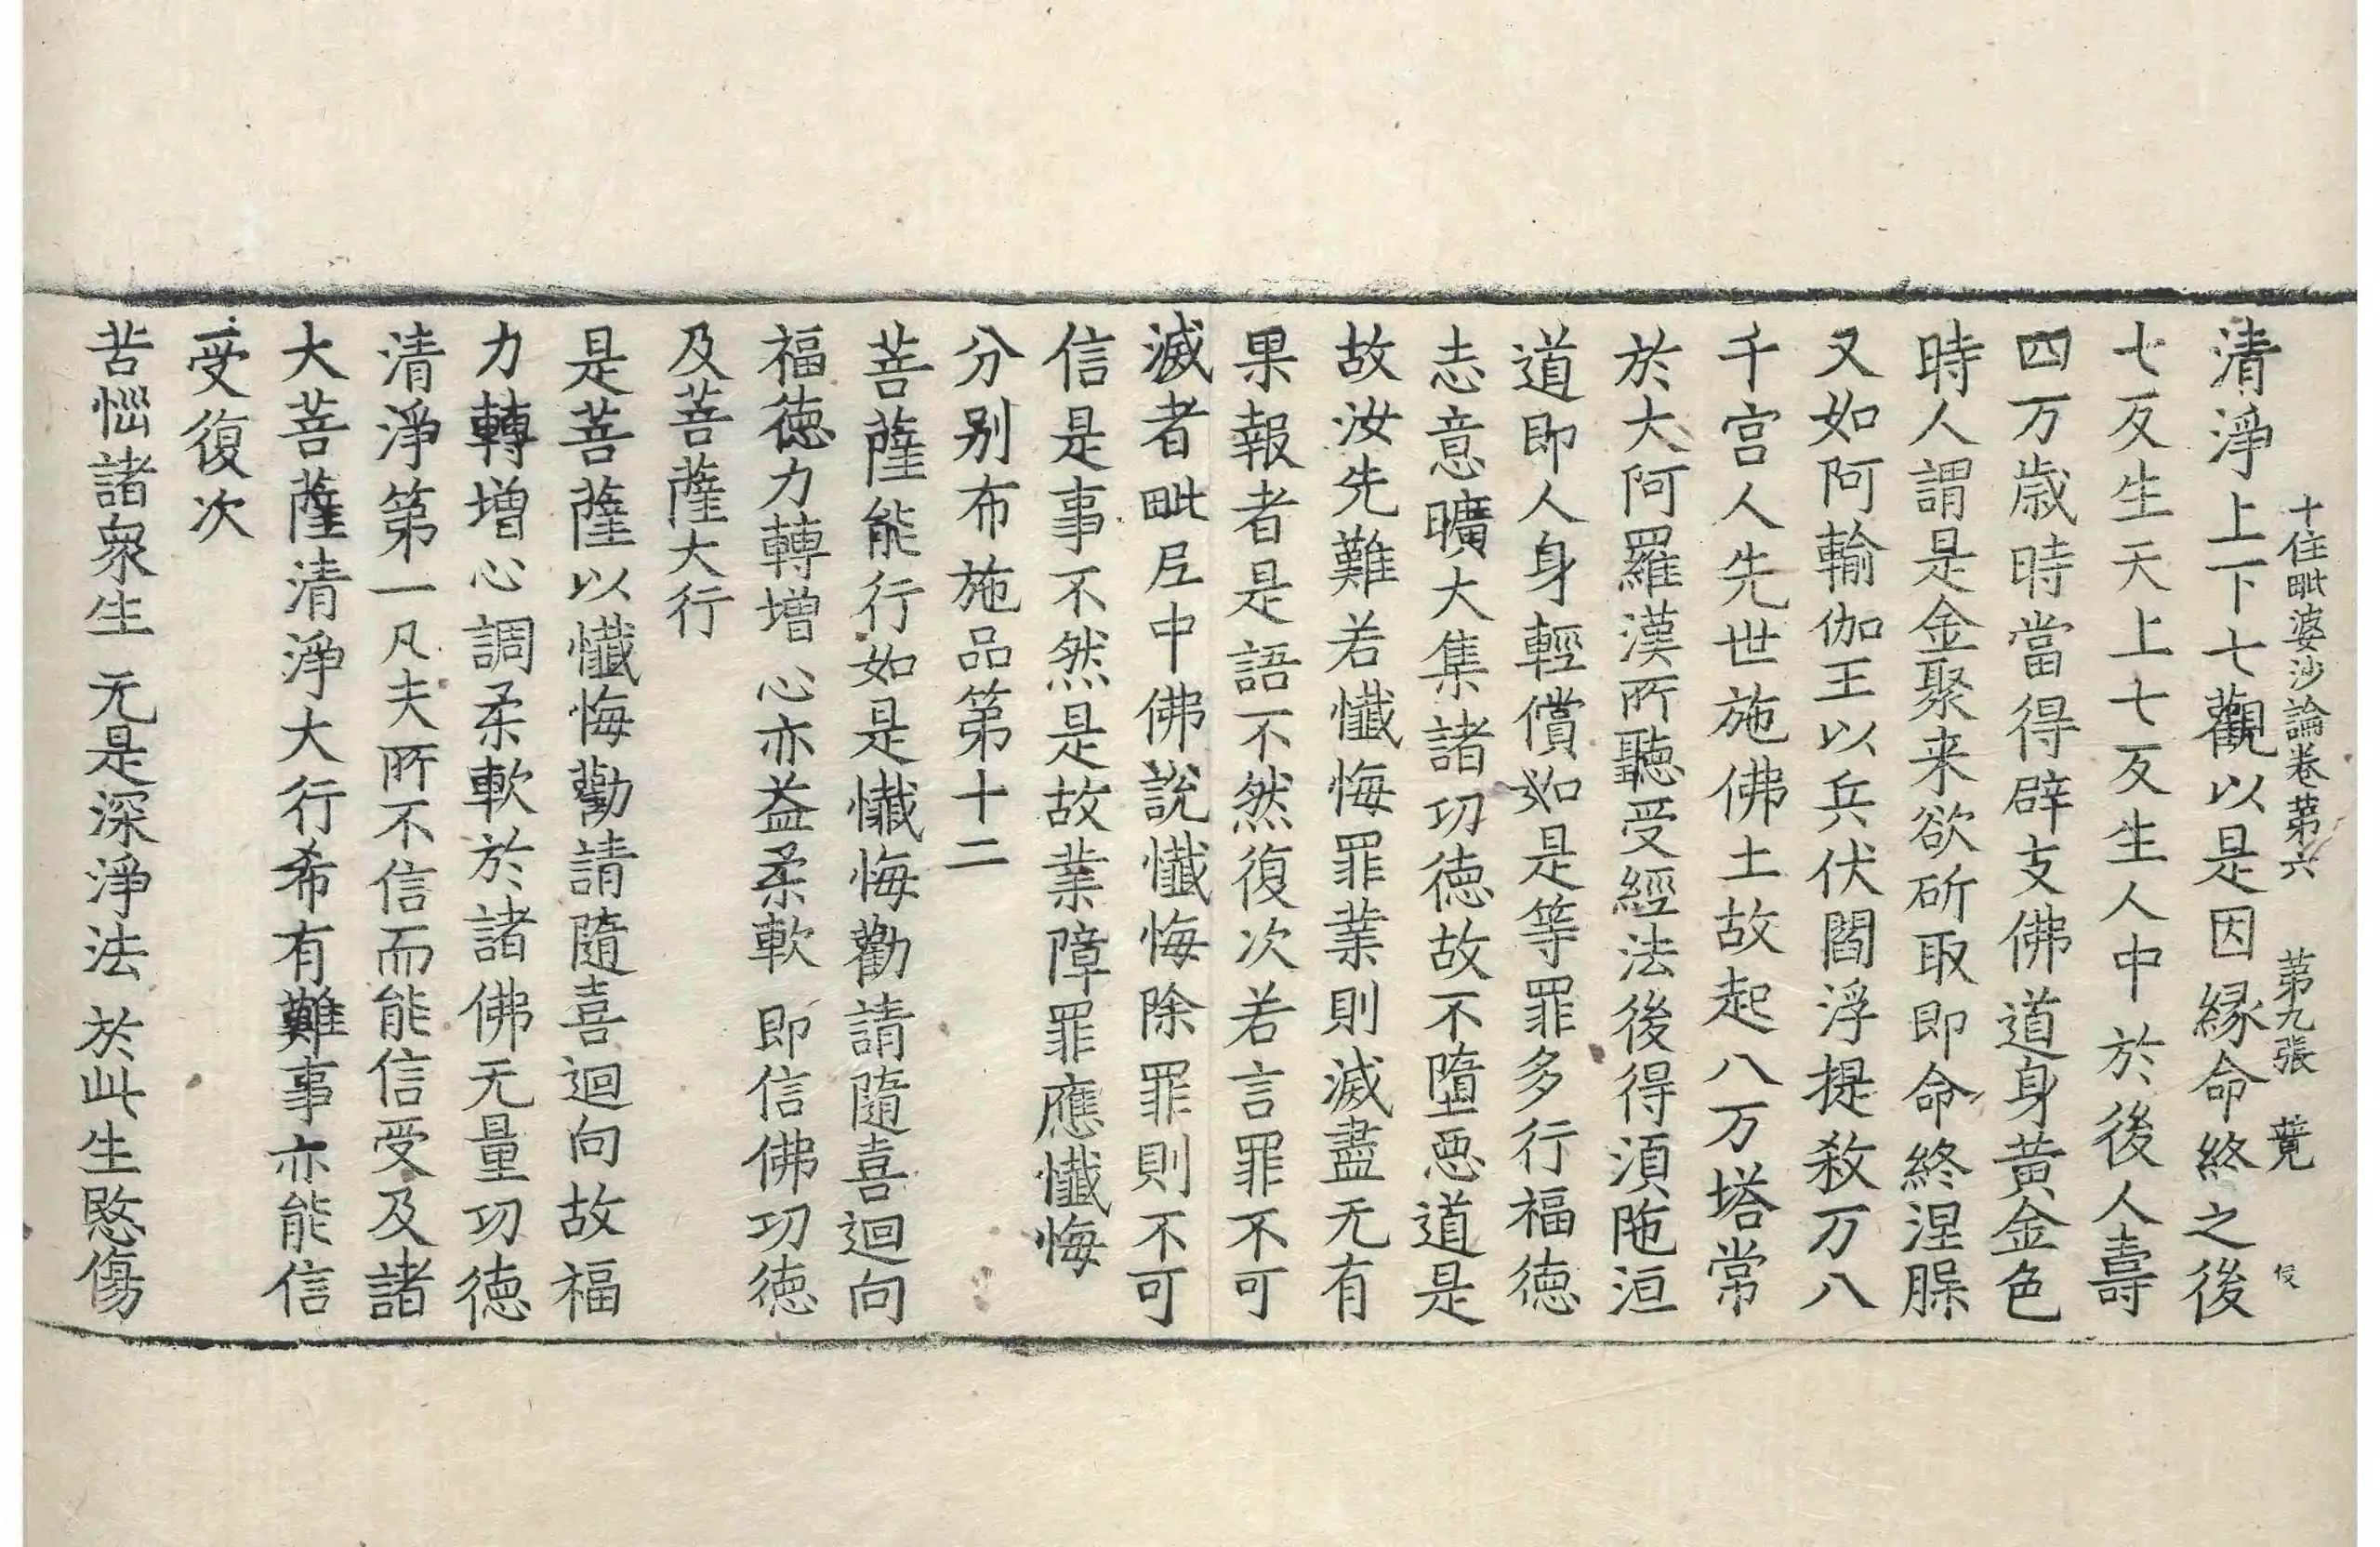 十住毗婆沙論卷苐六 苐九張 䕝
清淨上下七觀以是因縁命終之後
七反生天上七反生人中於後人壽
四万歳時當得辟支佛道身黃金色
時人謂是金聚来欲斫取即命終涅
又如阿輸伽王以兵伏閻浮提敎万八
千宫人先世施佛土故起八万塔常
於大阿羅漢所聽受經法後得湏陁洹
道即人身輕償如是等罪多行福徳
志意曠大集諸功徳故不墮惡道是
故汝先難若懺悔罪業則滅盡无有
果報者是語不然復次若言罪不可
滅者毗尼中佛說懺悔除罪則不可
信是事不然是故業障罪應懺悔
分别布施品第十二
菩薩能行如是懺悔勸請隨喜迴向
福徳力轉增 心亦益柔軟 即信佛功徳
及菩薩大行
是菩薩以懺悔勸請隨喜迴向故福
力轉增心調柔軟於諸佛无量功徳
清淨第一凡夫所不信而能信受及諸
大菩薩清淨大行希有難事亦能信
受復次
苦惱諸衆生 无是深淨法 於此生愍傷